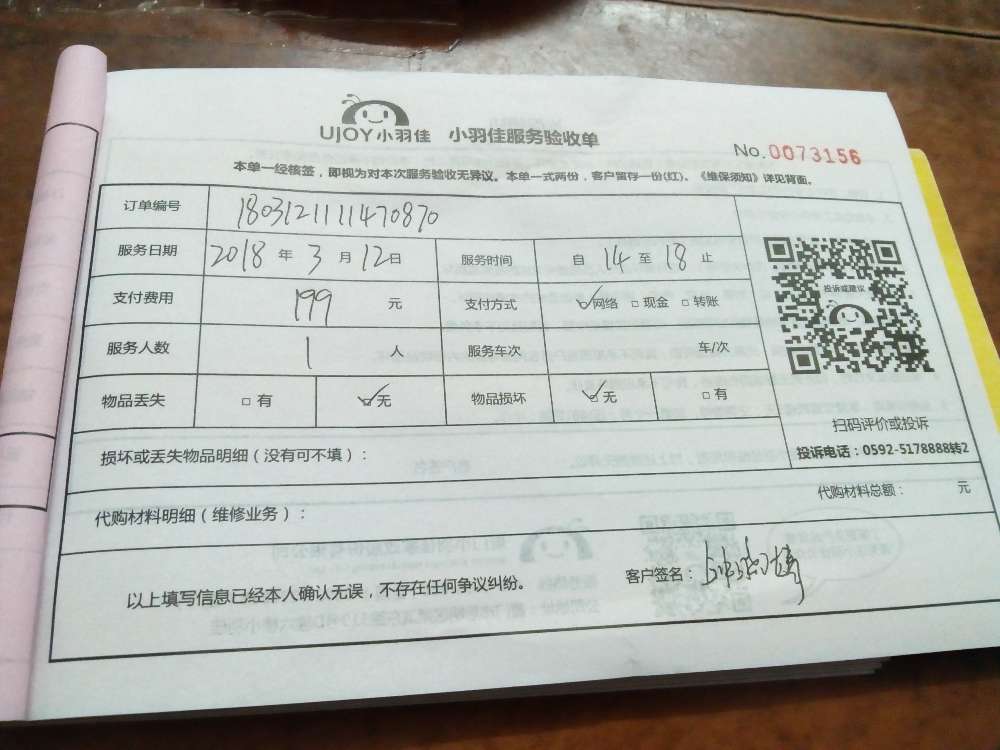 UJOY小羽佳 小羽佳服务验收单
No.0073156
本单一经核签，即视为对本次服务验收无异议。本单一式两份，客户留存一份(红)。《维保须知》详见背面。
订单编号 1803121111470870
服务日期 2018 年 3 月 12 日 服务时间 自 14 至 18 止
投诉或建议
支付费用 199 元 支付方式 ☑网络 □现金 □转账
服务人数 1 人 服务车次 车/次
物品丢失 □有 ☑无 物品损坏 ☑无 □有
扫码评价或投诉
投诉电话：0592-5178888转2
损坏或丢失物品明细（没有可不填）：
代购材料明细（维修业务）： 代购材料总额： 元
以上填写信息已经本人确认无误，不存在任何争议纠纷。 客户签名：